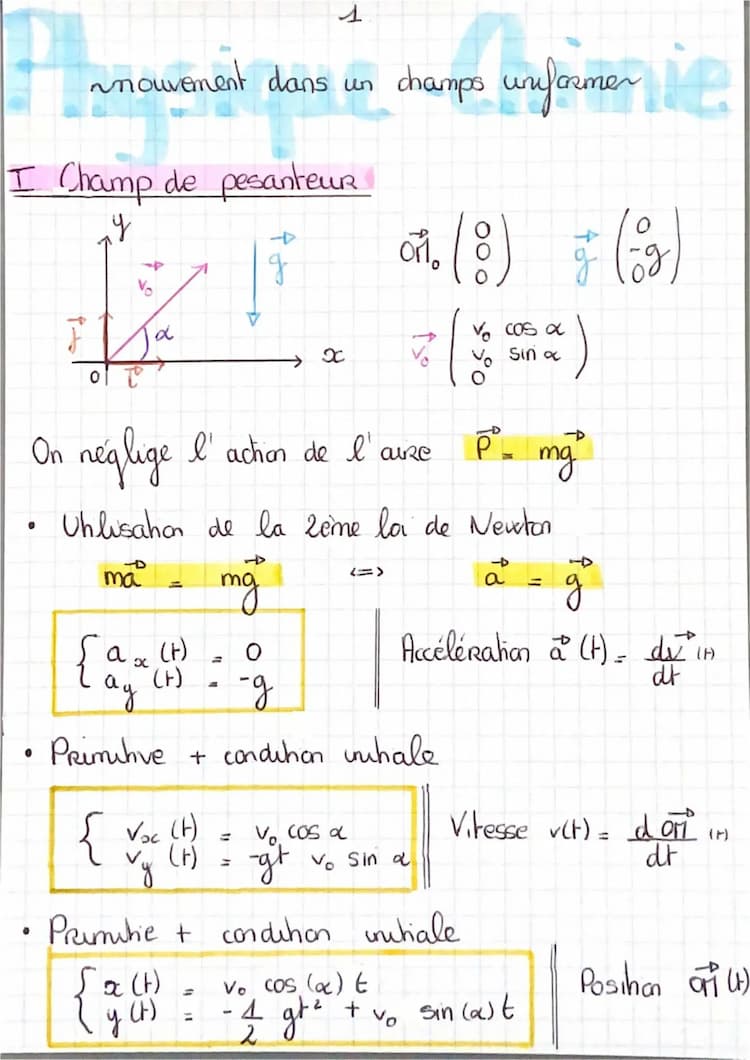 1
Physique-Chimie
mouvement dans un champs uniforme
I Champ de pesanteur
y
v₀→ g→ OM₀→ (0 0 0) g→ (0 -g 0)
j→ α
0 i→ x v₀→ (v₀ cos α v₀ sin α 0)
On néglige l'action de l'aire P→ = mg→
• Utilisation de la 2ème loi de Newton
ma→ = mg→ <=> a→ = g→
{ aₓ(t) = 0
a_y(t) = -g
Accélération a→(t) = dv→/dt (t)
• Primitive + condition initiale
{ vₓ(t) = v₀ cos α
v_y(t) = -gt v₀ sin α
Vitesse v(t) = dOM→/dt (t)
• Primitie + condition initiale
{ x(t) = v₀ cos(α)t
y(t) = -1/2 gt² + v₀ sin(α)t
Position OM→(t)